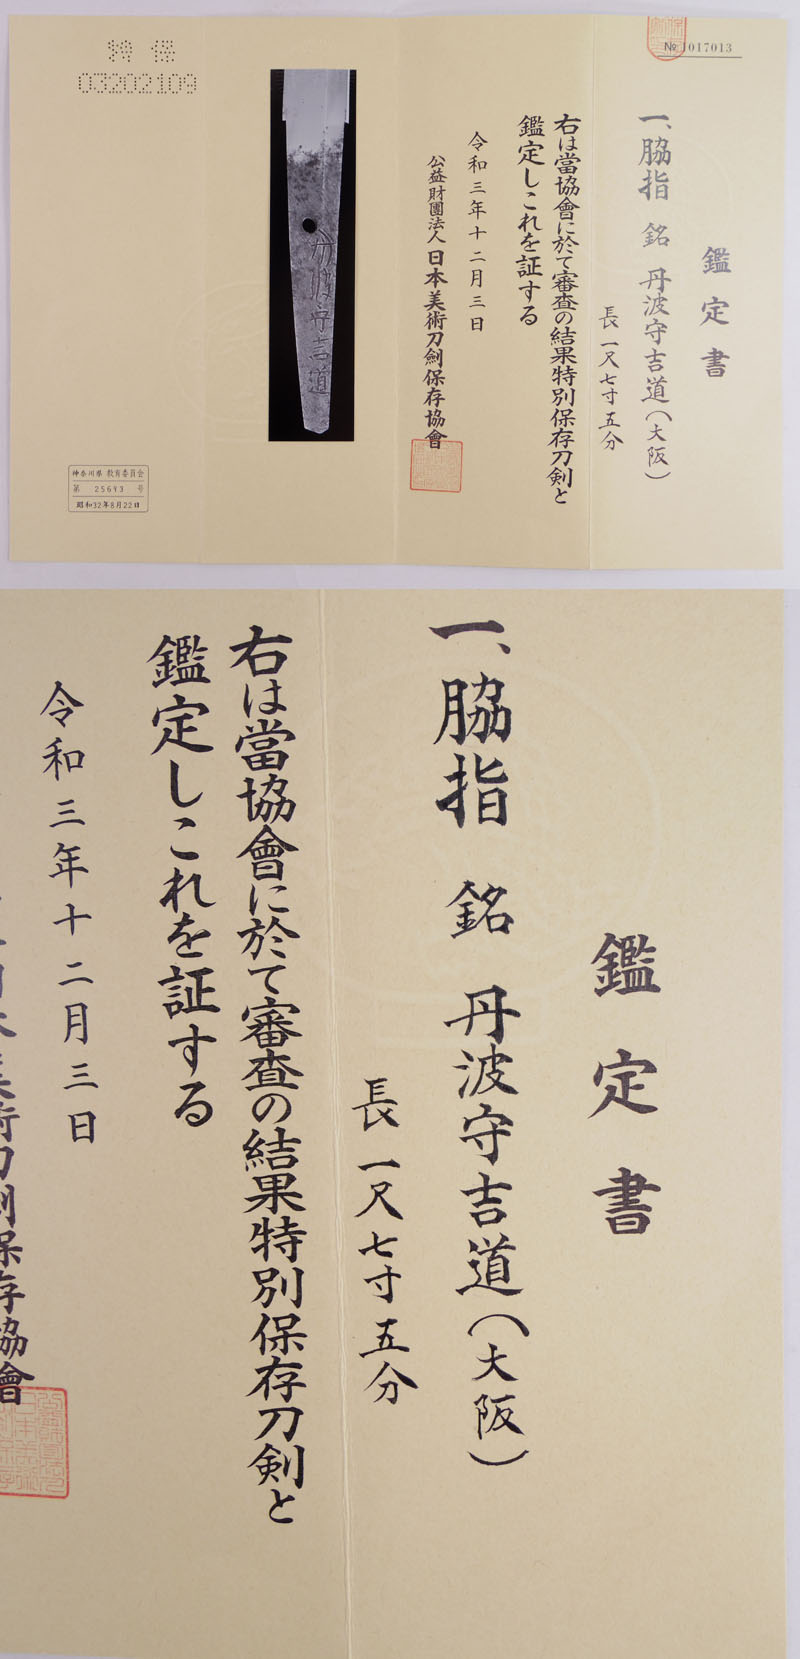 鑑定書
一、脇指 銘 丹波守吉道(大阪)
長一尺七寸五分
右は當協會に於て審査の結果特別保存刀剣と
鑑定しこれを証する
令和三年十二月三日
公益財團法人 日本美術刀劍保存協會
№ 1017013
丹波守吉道
特保
03202109
神奈川県 教育委員会
第 25693 号
昭和32年8月22日
鑑定書
一、脇指 銘 丹波守吉道(大阪)
長一尺七寸五分
右は當協會に於て審査の結果特別保存刀剣と
鑑定しこれを証する
令和三年十二月三日
日本美術刀劍保存協會